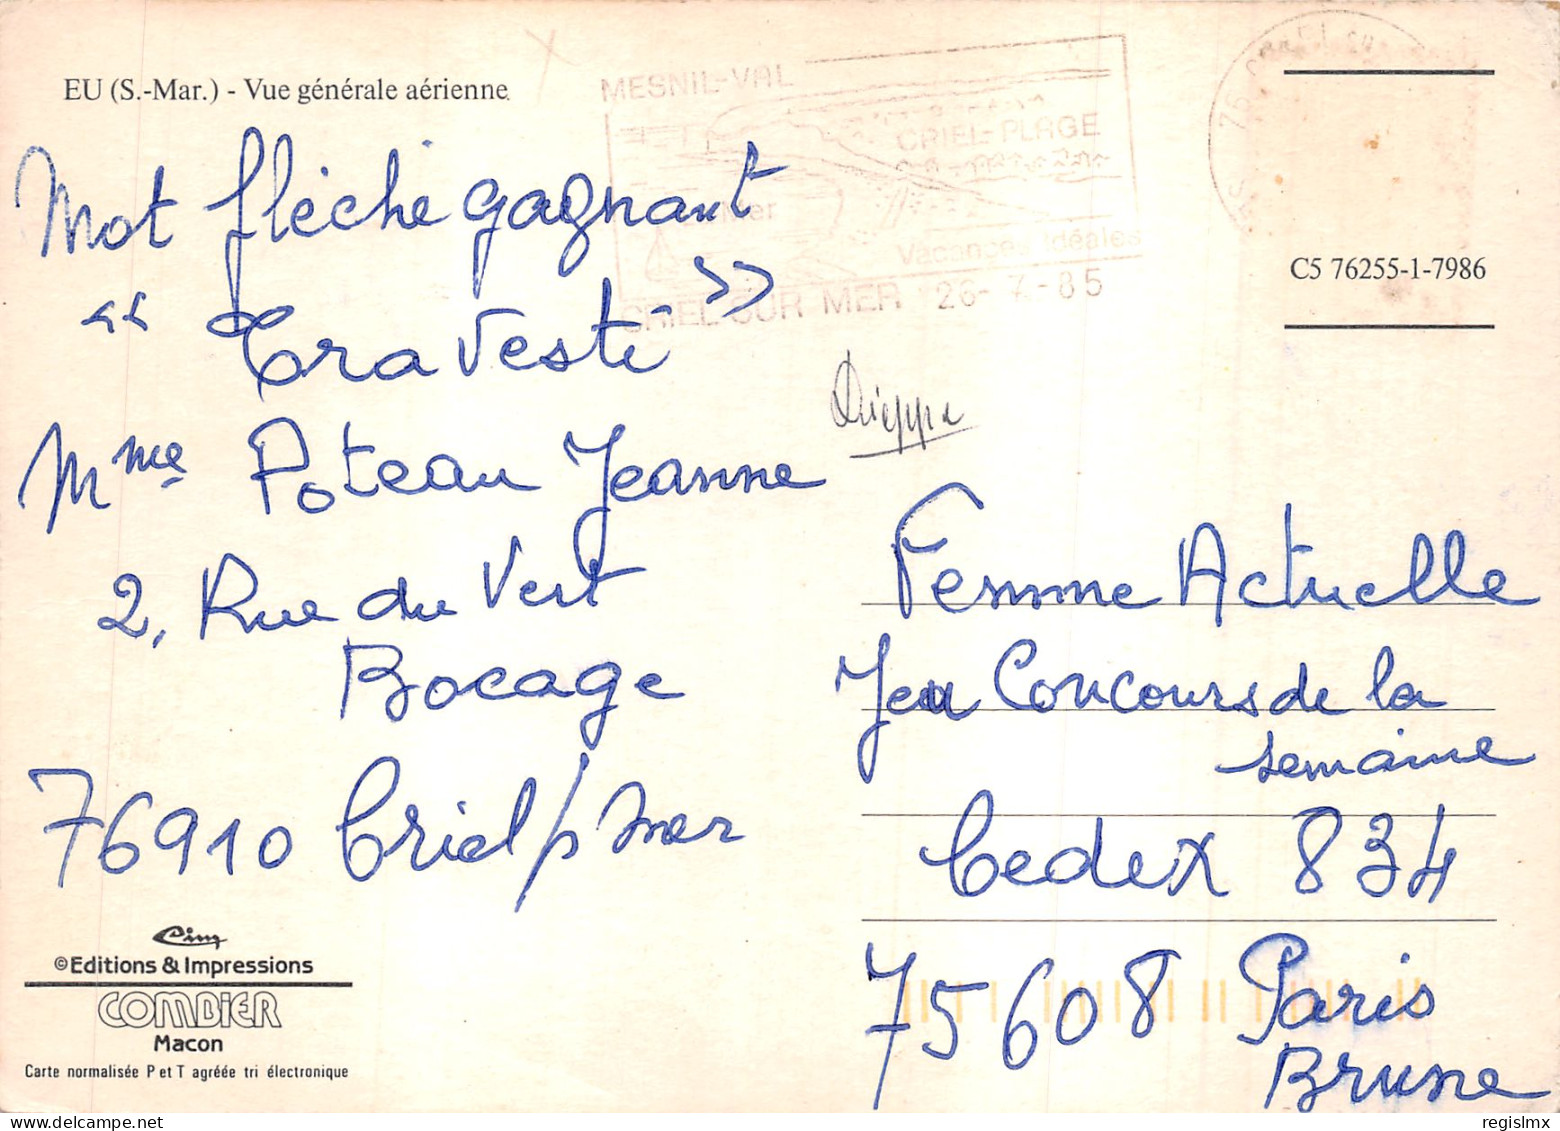 EU (S.-Mar.) - Vue générale aérienne
MESNIL-VAL
CRIEL-PLAGE
Mer
Vacances Idéales
CRIEL SUR MER 26-7-85
C5 76255-1-7986
Mot fléché gagnant
« Travesti »
Mme Poteau Jeanne
2, Rue du Vert
Bocage
76910 Criel s/ mer
Dieppe
Femme Actuelle
Jeu Concours de la
semaine
Cedex 834
75608 Paris
Brune
Cim
©Editions & Impressions
COMBIER
Macon
Carte normalisée P et T agréée tri électronique
regislmx